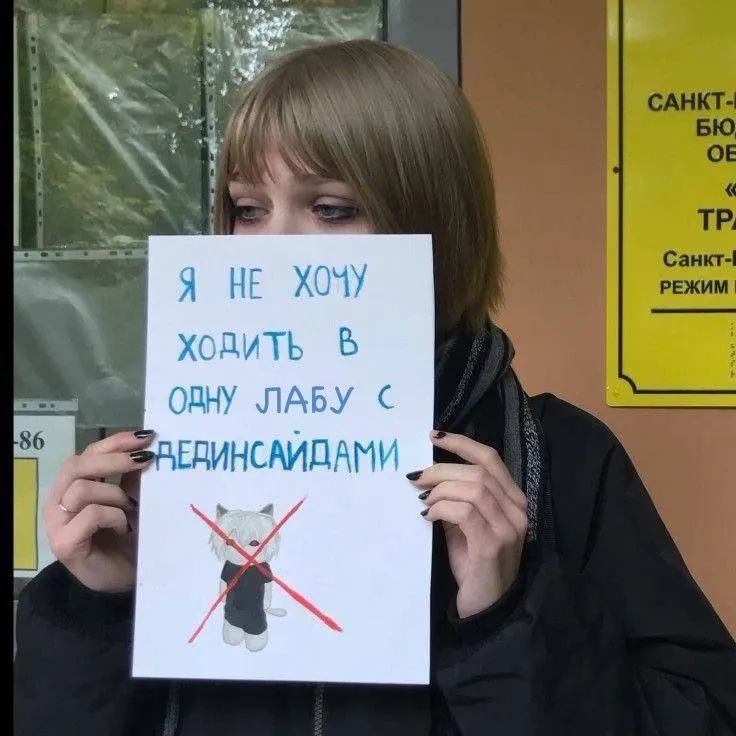 Я НЕ ХОЧУ
ХОДИТЬ В
ОДНУ ЛАБУ С
ДЕДИНСАЙДАМИ
САНКТ-
БЮ
ОБ
«
ТРА
Санкт-
РЕЖИМ
-86